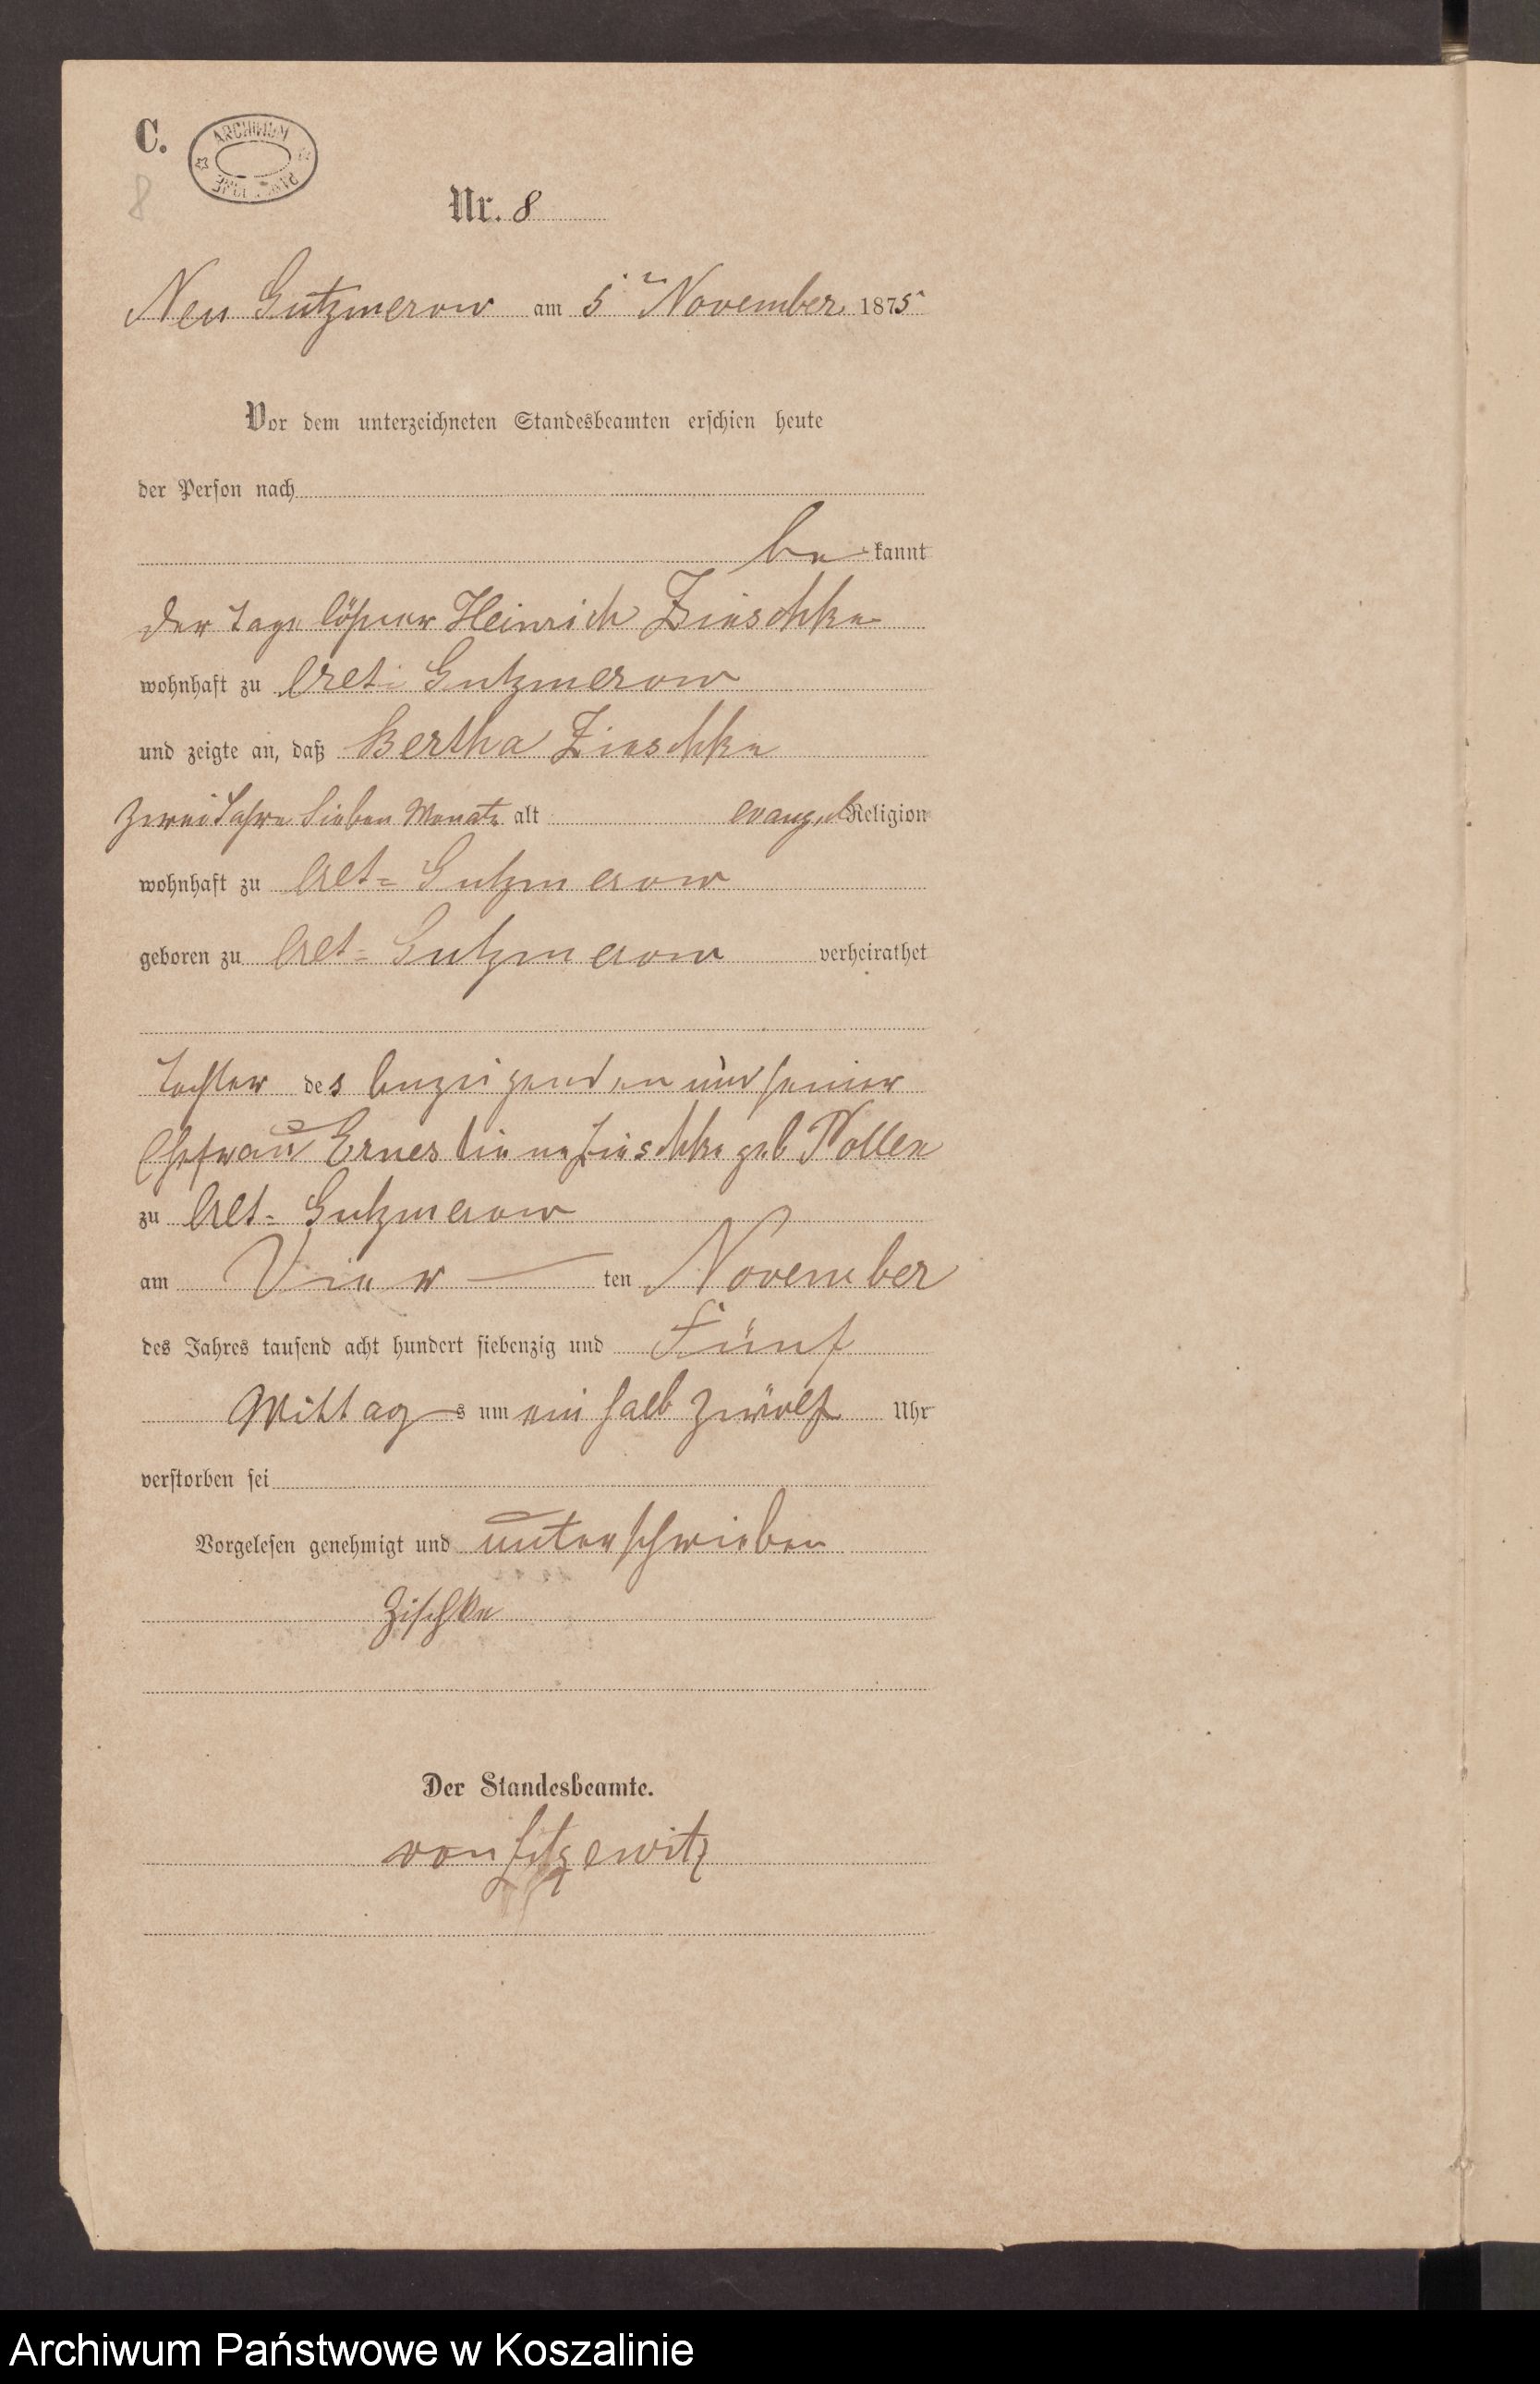 C.
ARCHIWUM
8
Nr. 8
Neu Gutzmerow am 5ten November 1875
Vor dem unterzeichneten Standesbeamten erschien heute
der Person nach
be kannt
der Tagelöhner Heinrich Zieschke
wohnhaft zu Alt-Gutzmerow
und zeigte an, daß Bertha Zieschke
zwei Jahre sieben Monate alt evangel Religion
wohnhaft zu Alt-Gutzmerow
geboren zu Alt-Gutzmerow verheirathet
Tochter des Anzeigenden und seiner
Ehefrau Ernestine Zieschke geb Nollen
zu Alt-Gutzmerow
am Vier ten November
des Jahres tausend acht hundert siebenzig und Fünf
Mittag s um ein halb zwölf Uhr
verstorben sei
Vorgelesen genehmigt und unterschrieben
Zischke
Der Standesbeamte.
von Zitzewitz
Archiwum Państwowe w Koszalinie